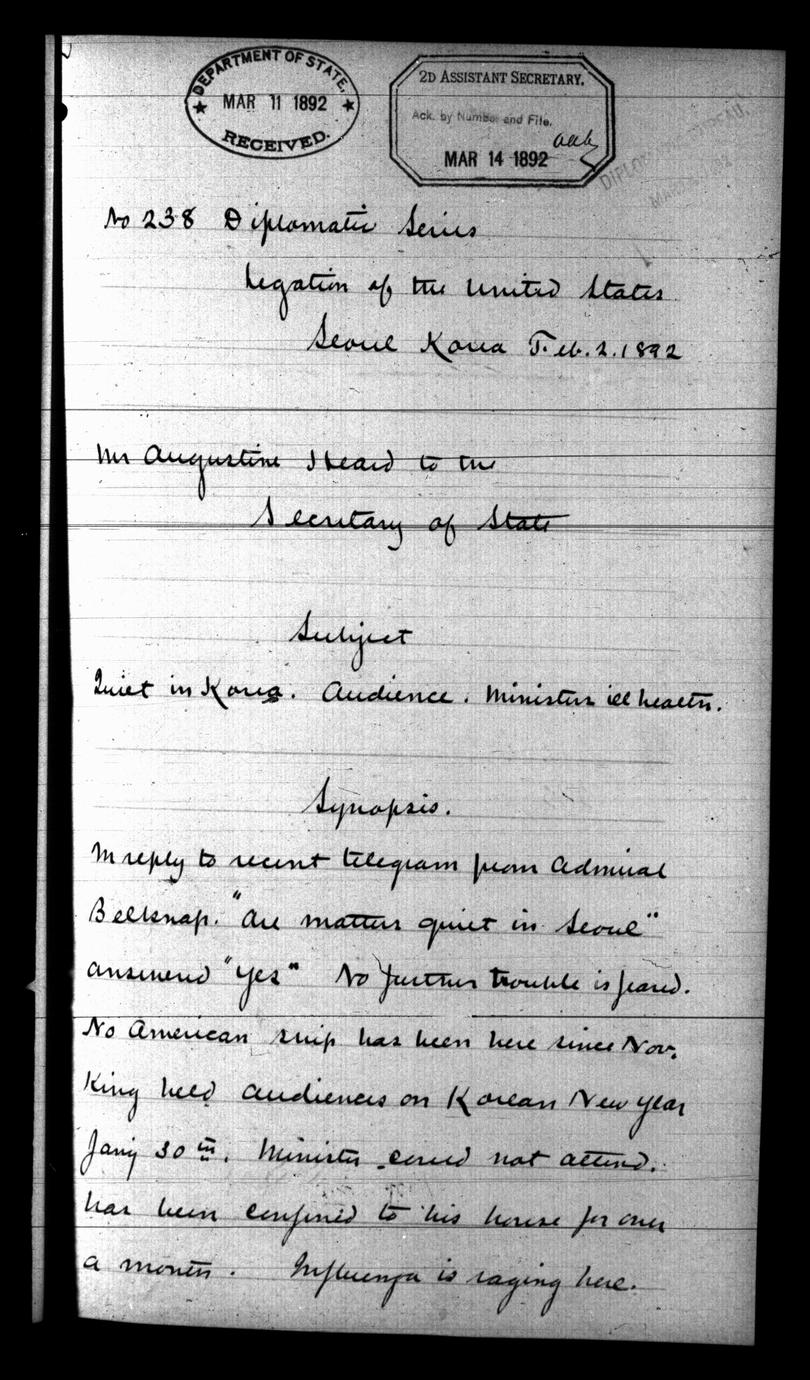 DEPARTMENT OF STATE.
MAR 11 1892
RECEIVED.
2D ASSISTANT SECRETARY.
Ack. by Number and File.
MAR 14 1892
No 238 Diplomatic Series
Legation of the United States
Seoul Korea Feb. 2. 1892
Mr Augustine Heard to the
Secretary of State
Subject
Quiet in Korea. Audience. Ministers ill health.
Synopsis.
In reply to recent telegram from Admiral
Belknap. "Are matters quiet in Seoul"
answered "Yes" No further trouble is feared.
No American ship has been here since Nov.
King held audiences on Korean New Year
Jany 30th. Minister could not attend.
has been confined to his house for over
a month. Influenza is raging here.